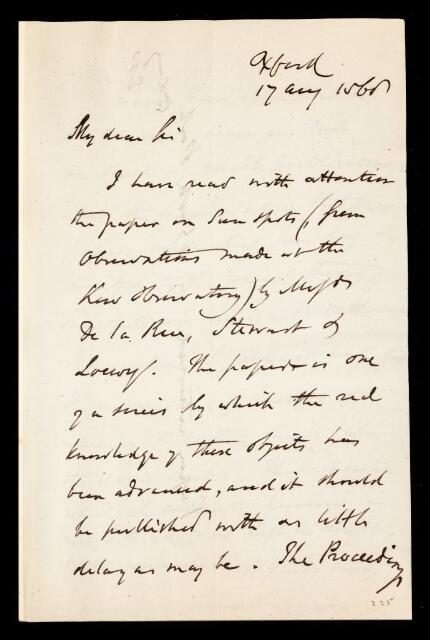 Oxford
17 Aug 1868
My dear Sir
I have read with attention
the paper on Sun Spots (from
Observations made at the
Kew Observatory) by Messrs
De la Rue, Stewart &
Loewy. The paper is one
of a series by which the real
knowledge of these objects has
been advanced, and it should
be published with as little
delay as may be. The Proceedings
225